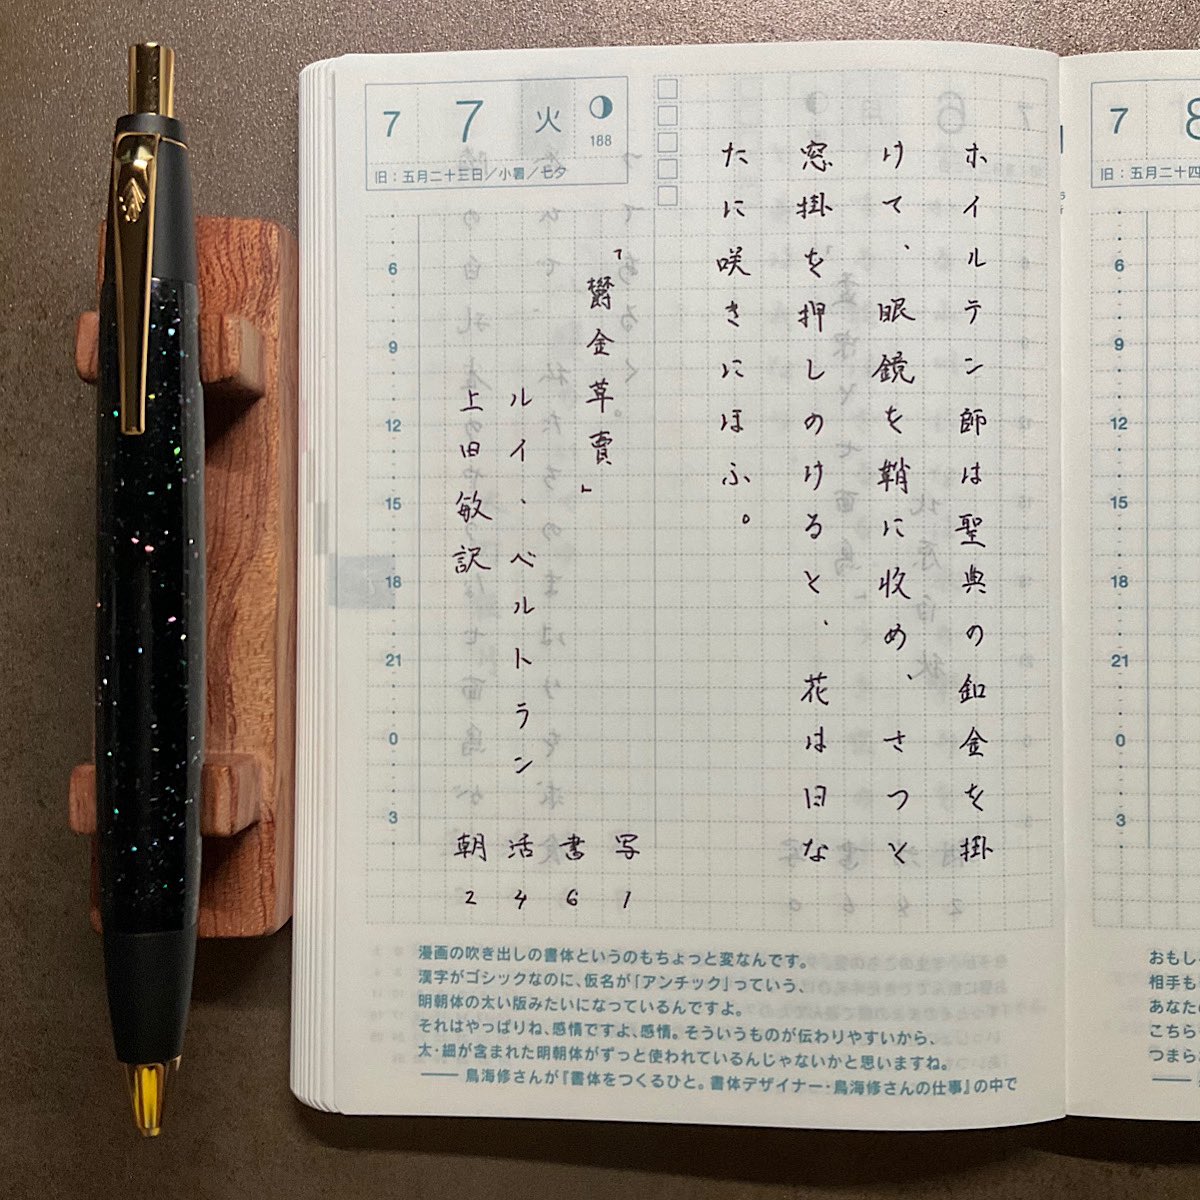 7 7 火
188
旧：五月二十三日／小暑／七夕
ホイルテン師は聖典の釦金を掛
けて、眼鏡を鞘に收め、さつと
窓掛を押しのけると、花は日な
たに咲きにほふ。
「欝金草賣」
ルイ・ベルトラン
上田敏訳
写1
書6
活4
朝2
6
9
12
15
18
21
0
3
漫画の吹き出しの書体というのもちょっと変なんです。
漢字がゴシックなのに、仮名が「アンチック」っていう、
明朝体の太い版みたいになっているんですよ。
それはやっぱりね、感情ですよ、感情。そういうものが伝わりやすいから、
太・細が含まれた明朝体がずっと使われているんじゃないかと思いますね。
── 鳥海修さんが『書体をつくるひと。書体デザイナー・鳥海修さんの仕事』の中で
7 8
旧：五月二十四
6
9
12
15
18
21
0
3
おもし
相手も
あなた
こちら
つまら